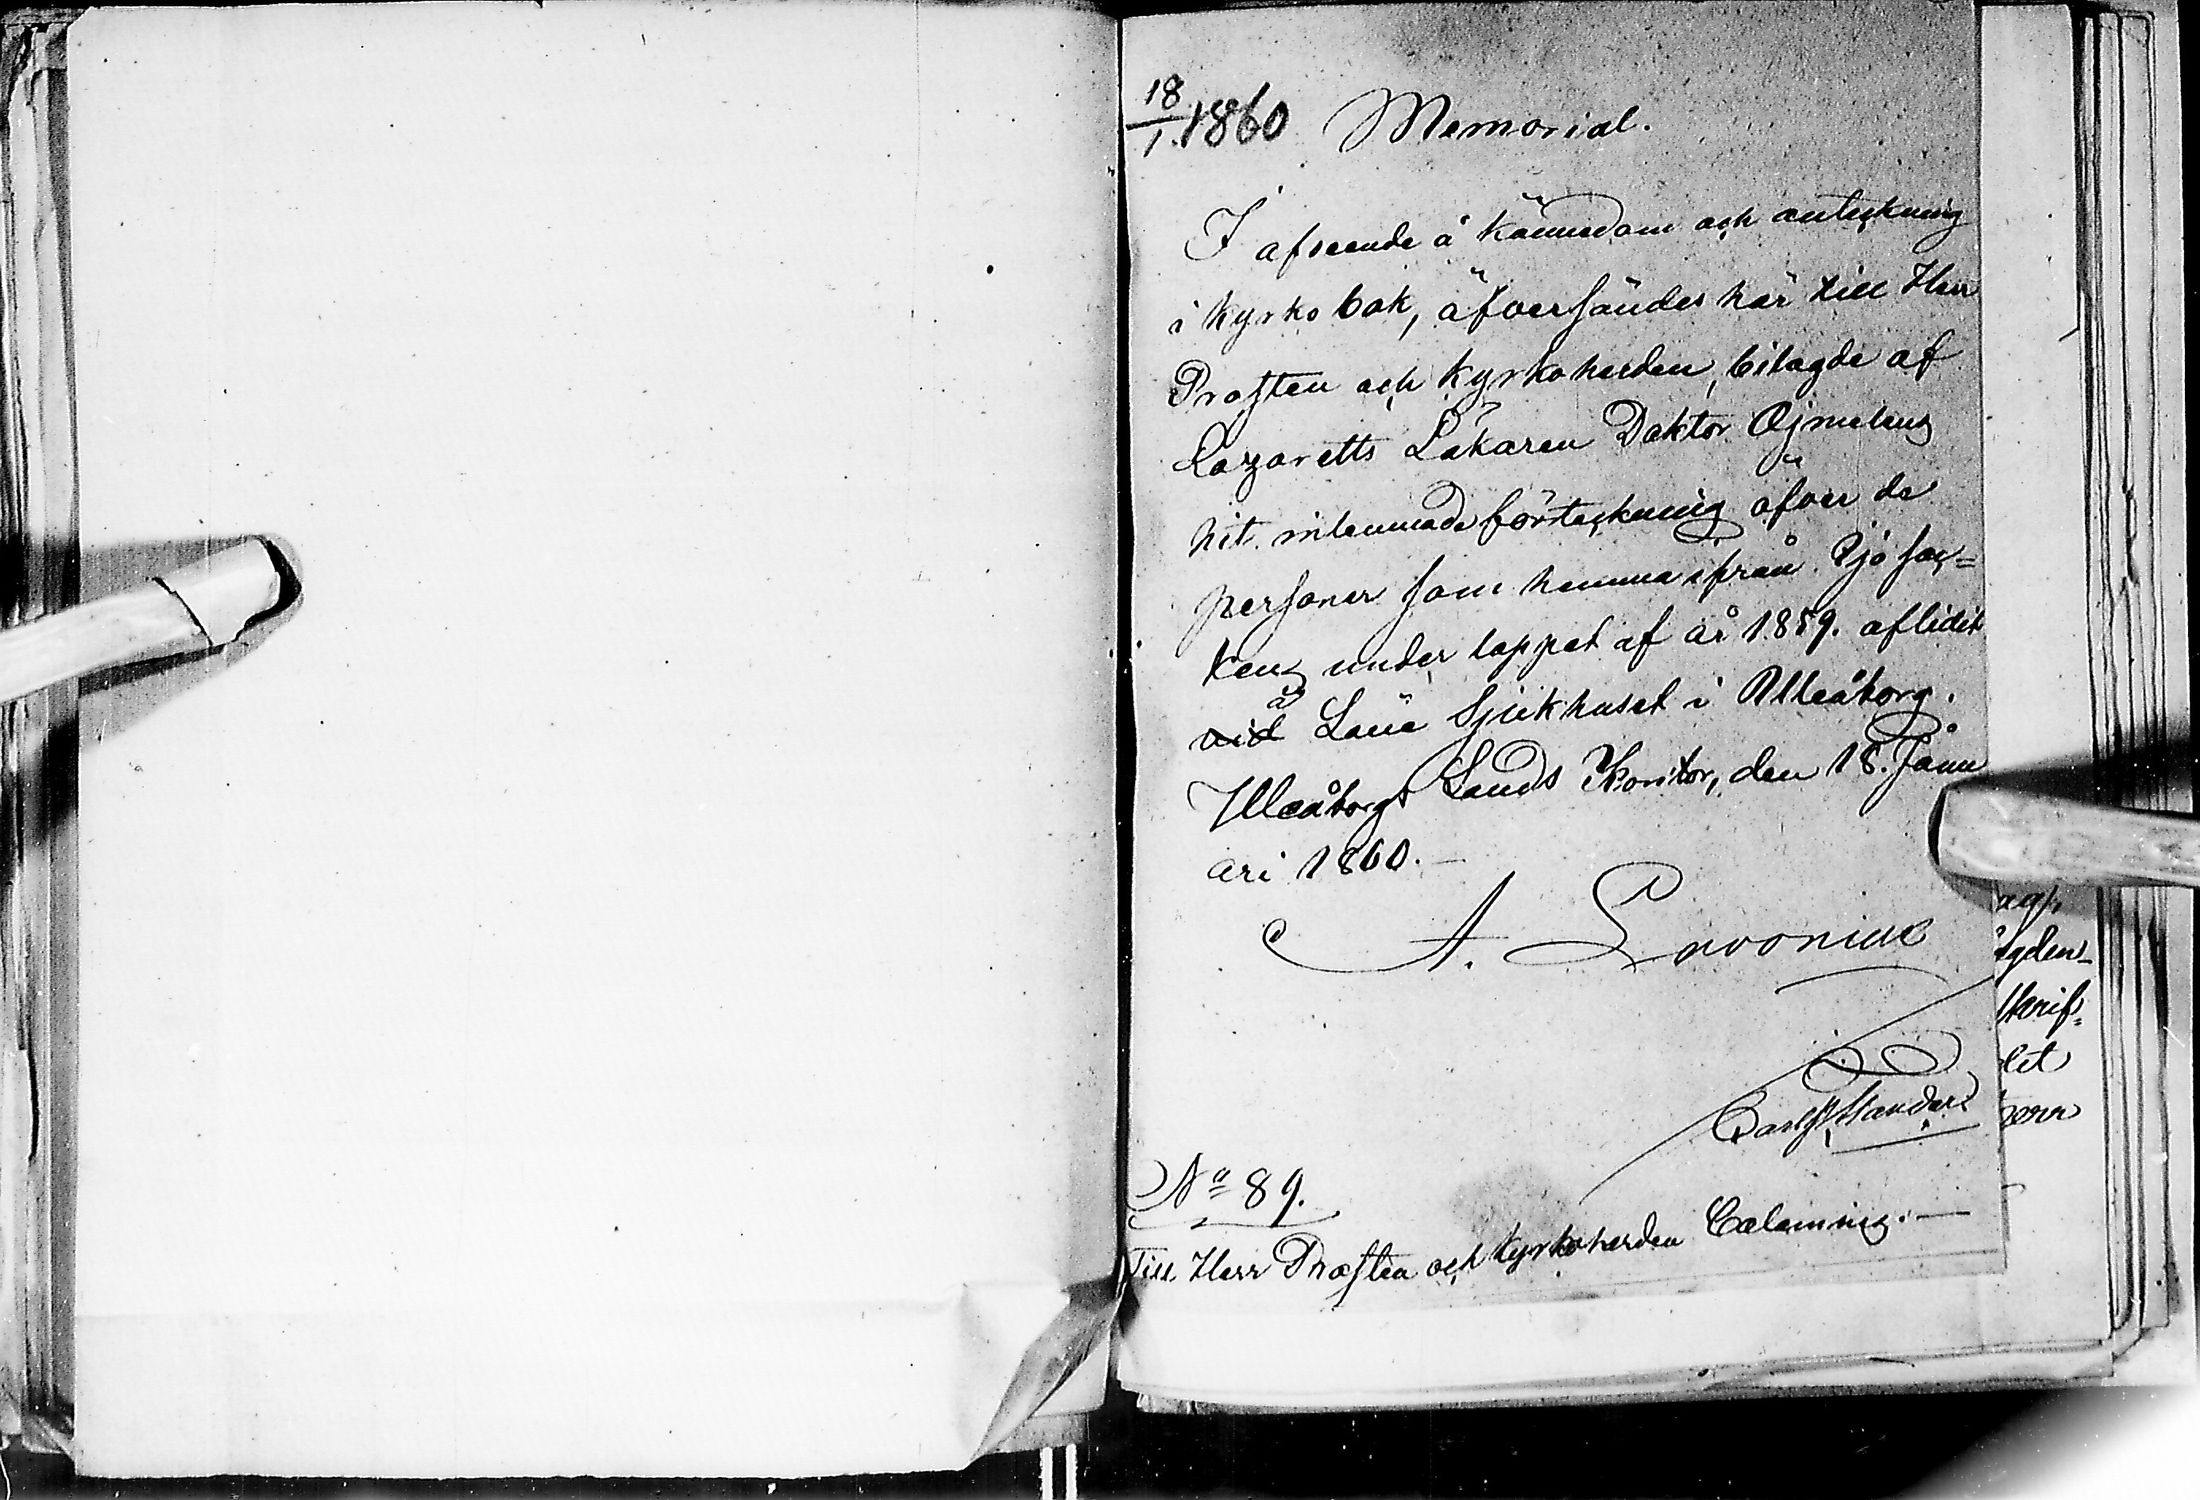 18/1. 1860 Memorial.
I afseende å kännedom och anteckning
i Kyrko bok, äfversändes här till Herr
Prosten och Kyrkoherden, bilagde af
Lazaretts Läkaren Doktor
hit. inlemnade förteckning öfver de
personer som hemma ifrån Sjö soc=
ken, under loppet af år 1859. aflidit
å
vid Läns Sjukhuset i Uleåborg.
Uleåborgs Lands Kontor, den 18. Janu
ari 1860. —
A. Lavonius
No 89.
Till Herr Prosten och Kyrkoherden Calamnius. —